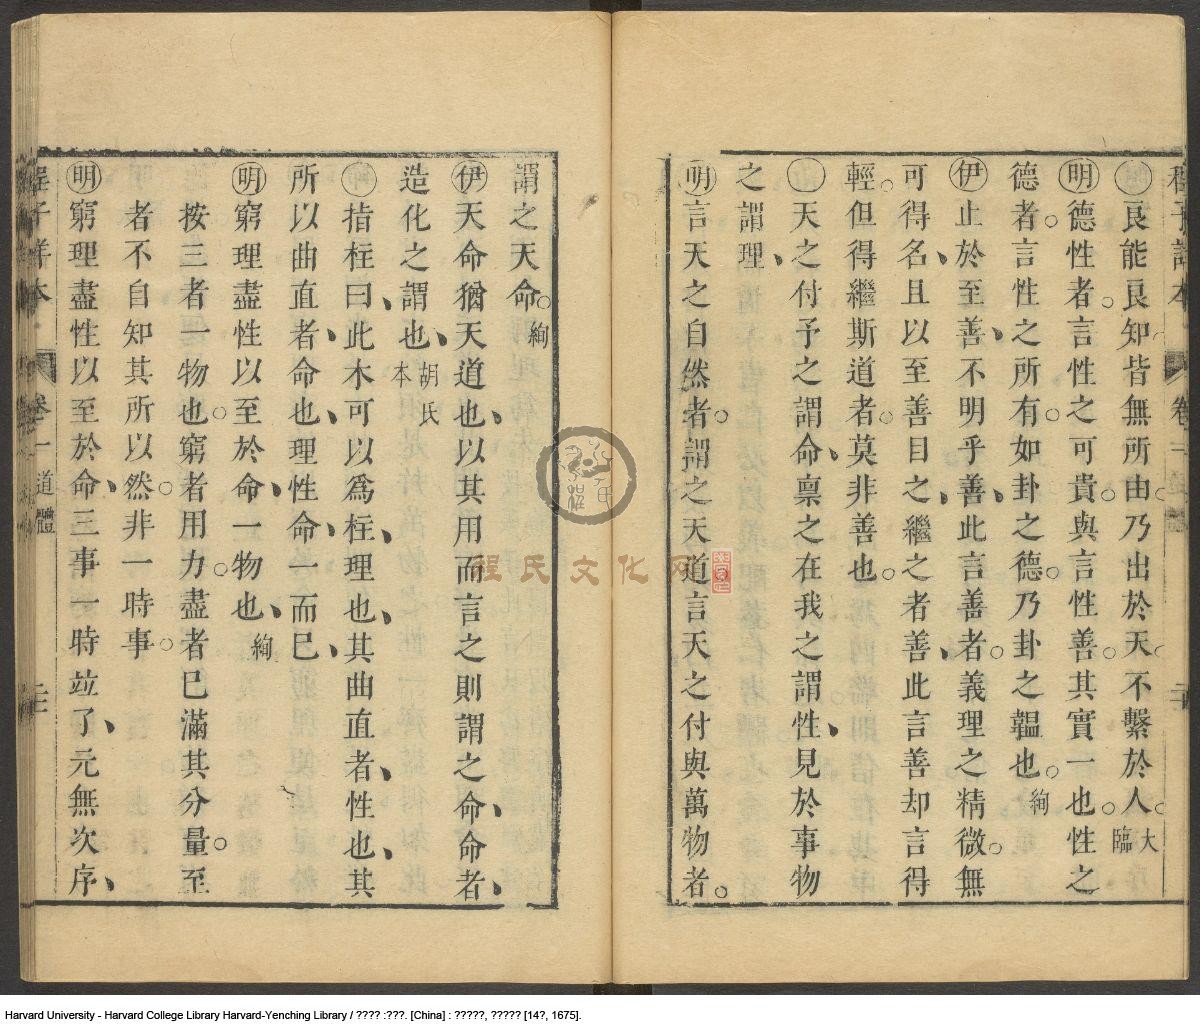 良能良知皆無所由乃出於天不繫於人大臨
明德性者言性之可貴與言性善其實一也性之
德者言性之所有如卦之德乃卦之韞也絢
伊止於至善不明乎善此言善者義理之精微無
可得名且以至善目之繼之者善此言善却言得
輕但得繼斯道者莫非善也
天之付予之謂命稟之在我之謂性見於事物
之謂理
明言天之自然者謂之天道言天之付與萬物者
謂之天命絢
伊天命猶天道也以其用而言之則謂之命命者
造化之謂也胡氏本
指柱曰此木可以爲柱理也其曲直者性也其
所以曲直者命也理性命一而已
明窮理盡性以至於命一物也絢
按三者一物也窮者用力盡者已滿其分量至
者不自知其所以然非一時事
明窮理盡性以至於命三事一時竝了元無次序
卷一 道體
程氏文化网
Harvard University - Harvard College Library Harvard-Yenching Library / ???? :???. [China] : ?????, ????? [14?, 1675].